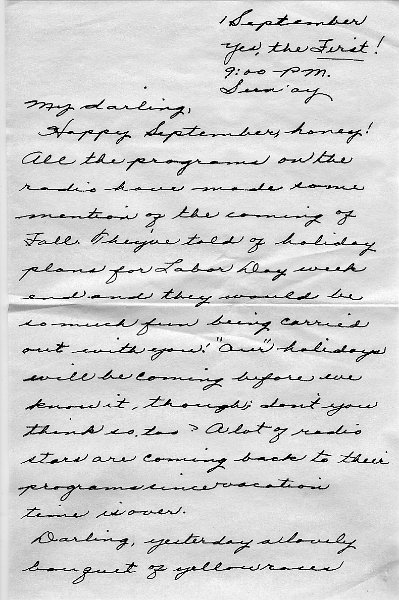 1 September
Yes, the First!
9:00 P.M.
Sun'ay
My darling,
Happy September, honey!
All the programs on the
radio have made some
mention of the coming of
Fall. They've told of holiday
plans for Labor Day week
end and they would be
so much fun being carried
out with you! "Our" holidays
will be coming before we
know it, though; don't you
think so, too? A lot of radio
stars are coming back to their
programs since vacation
time is over.
Darling, yesterday a lovely
bouquet of yellow roses